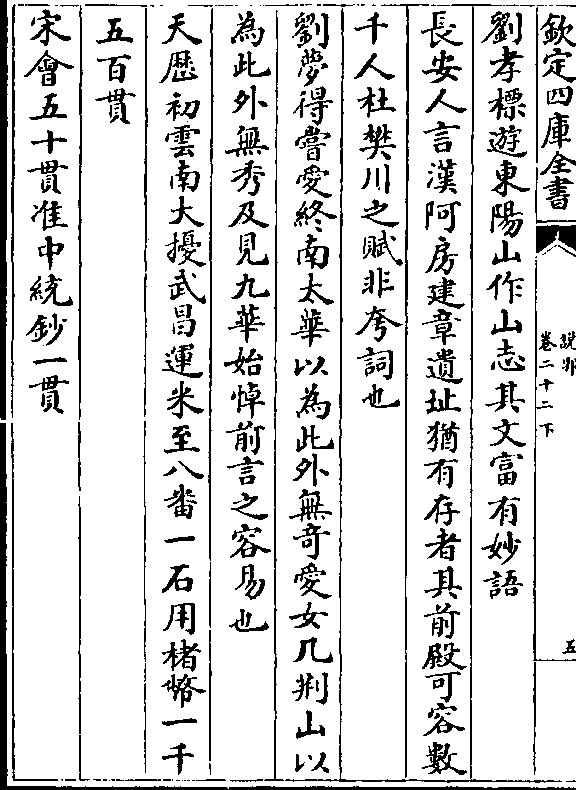 欽定四庫全書
説郛
卷二十二下
五
劉孝標遊東陽山作山志其文富有妙語
長安人言漢阿房建章遺址猶有存者其前殿可容數
千人杜樊川之賦非夸詞也
劉夢得嘗愛終南太華以為此外無奇愛女几荆山以
為此外無秀及見九華始悼前言之容易也
天厯初雲南大擾武昌運米至八番一石用楮幣一千
五百貫
宋會五十貫准中統鈔一貫